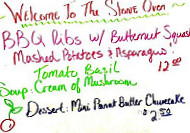 Welcome To The Stone Oven
BBQ Ribs w/ Butternut Squash
Mashed Potatoes & Asparagus.
Tomato Basil 12.00
Soup: Cream of Mushroom
Dessert: Mini Peanut Butter Cheesecake
$2.50